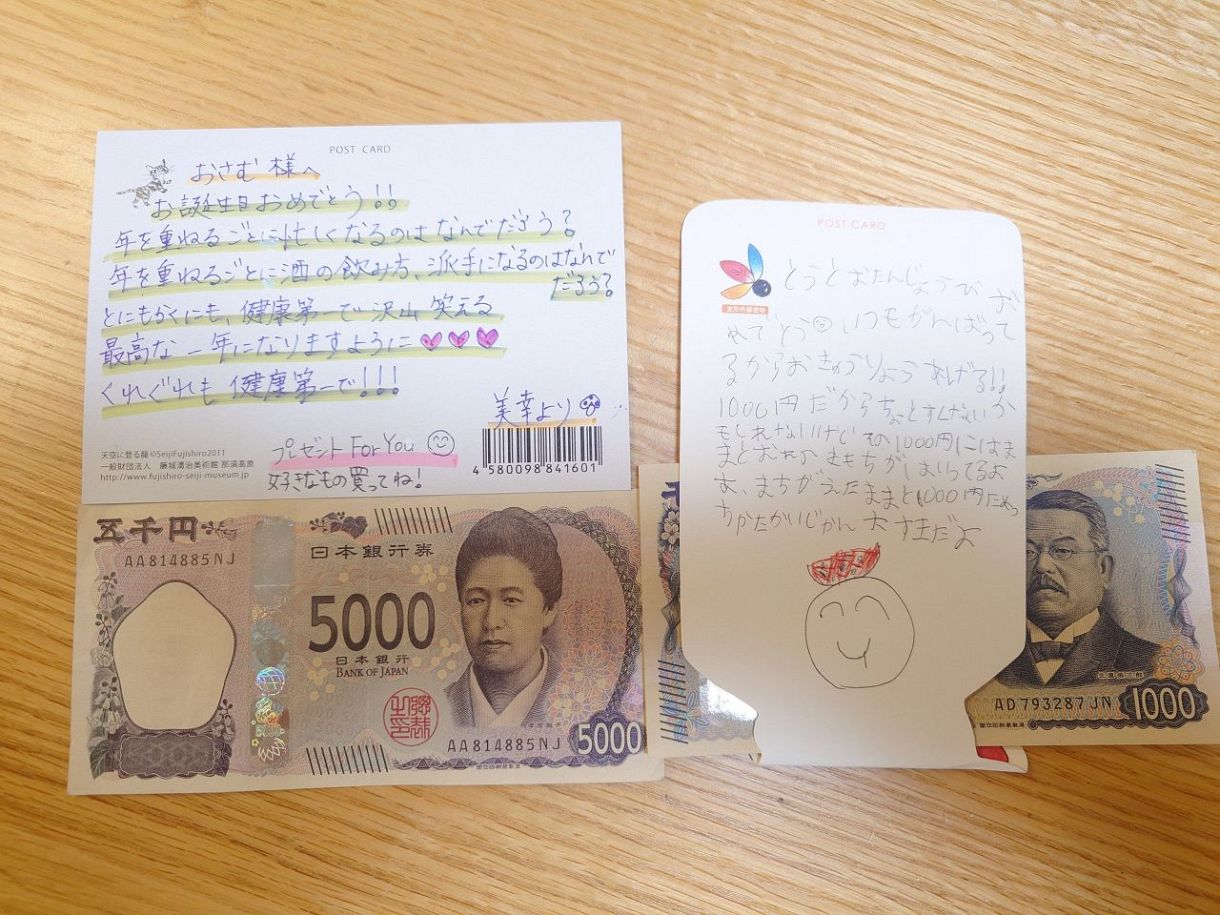 POST CARD
おさむ様へ
お誕生日おめでとう!!
年を重ねるごとに忙しくなるのはなんでだろう?
年を重ねるごとに酒の飲み方、派手になるのはなんで
だろう?
とにもかくにも、健康第一で沢山笑える
最高な一年になりますように
くれぐれも健康第一で!!!
美幸より
プレゼント For You
好きなもの買ってね!
天空に登る龍 ©SeijiFujishiro2011
一般財団法人 藤城清治美術館 那須高原
http://www.fujishiro-seiji-museum.jp
4 580098 841601
五千円
AA814885NJ
日本銀行券
5000
日本銀行
BANK OF JAPAN
AA814885NJ
5000
POST CARD
定形外郵便物
とうとおたんじょうびお
めでとう いつもがんばって
るからおきゅうりょうあげる!!
1000円だからちょとすくないか
もしれないけど その1000円にはま
まとおやのきもちが はいってるよ
1000円
大すきだよ
AD793287JN
1000